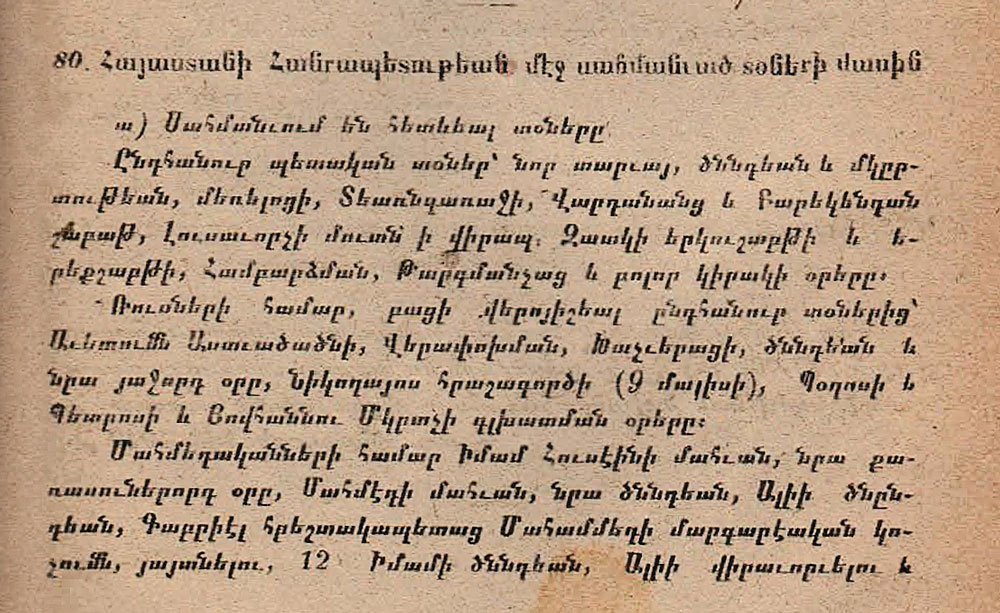 80. Հայաստանի Հանրապետութեան մէջ սահմանւած տօների մասին
ա) Սահմանւում են հետևեալ տօները՝
Ընդհանուր պետական տօներ՝ նոր տարւայ, ծննդեան և մկըր-
տութեան, մեռելոցի, Տեառնդառաջի, Վարդանանց և Բարեկենդան
շաբաթ, Լուսաւորչի մուտն ի վիրապ. Զատկի երկուշաբթի և ե-
րեքշաբթի, Համբարձման, Թարգմանչաց և բոլոր կիրակի օրերը։
Ռուսների համար, բացի վերոյիշեալ ընդհանուր տօներից՝
Աւետումն Աստւածածնի, Վերափոխման, Խաչվերացի, ծննդեան և
նրա յաջորդ օրը, Նիկողայոս հրաշագործի (9 մայիսի), Պօղոսի և
Պետրոսի և Յովհաննու Մկրտչի գլխատման օրերը։
Մահմեդականների համար Իմամ Հուսէինի մահւան, նրա քա-
ռասուներորդ օրը, Մահմէդի մահւան, նրա ծննդեան, Ալիի ծնըն-
դեան, Գաբրիէլ հրեշտակապետաց Մահամմեդի մարգարէական կո-
չումն, յայտնելու, 12 Իմամի ծննդեան, Ալիի վիրաւորւելու և